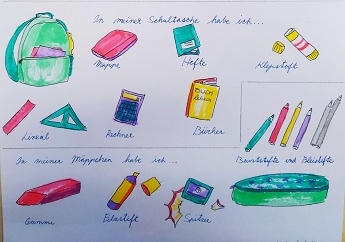 In meiner Schultasche habe ich...
Mappe
Hefte
Klepstoft
Lineal
Rechner
BUCH
Bücher
Buntstifte und Bleistifte
In meiner Mäppchen habe ich...
Gummi
Filzstift
Spitzer